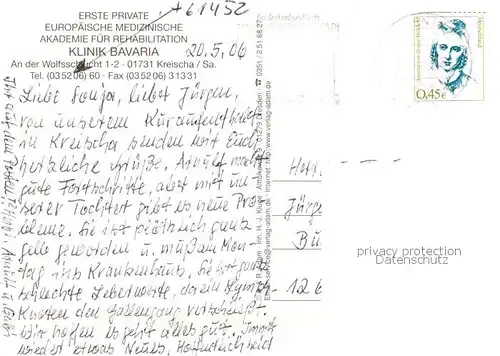 +61452
ERSTE PRIVATE
EUROPÄISCHE MEDIZINISCHE
AKADEMIE FÜR REHABILITATION
KLINIK BAVARIA
An der Wolfsschlucht 1-2 · 01731 Kreischa / Sa.
Tel. (035206) 60 · Fax (035206) 31331
20.5.06
Liebe Sonja, lieber Jürgen,
von unserem Kuraufenthalt
in Kreischa senden wir Euch
herzliche Grüße. Arnulf macht
gute Fortschritte, aber mit un-
serer Tochter gibt es neue Pro-
bleme. Sie ist plötzlich ganz
gelb geworden u. muß am Mon-
tag ins Krankenhaus. Sie hat ganz
schlechte Leberwerte, da ein Lymph-
knoten den Gallengang verschließt.
Wir hoffen es geht alles gut. Immer
wieder etwas Neues. Hoffentlich seid
0,45€
Deutschland
Herrn
Jürgen
Bu
126
privacy protection
Datenschutz